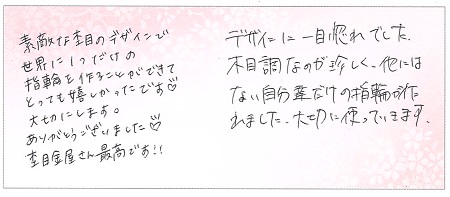 素敵な杢目のデザインで
世界に1つだけの
指輪を作ることができて
とっても嬉しかったです♡
大切にします。
ありがとうございました♡
杢目金屋さん最高です!!
デザインに一目惚れでした。
木目調なのが珍しく、他には
ない自分達だけの指輪が作
れました。大切に使っていきます。